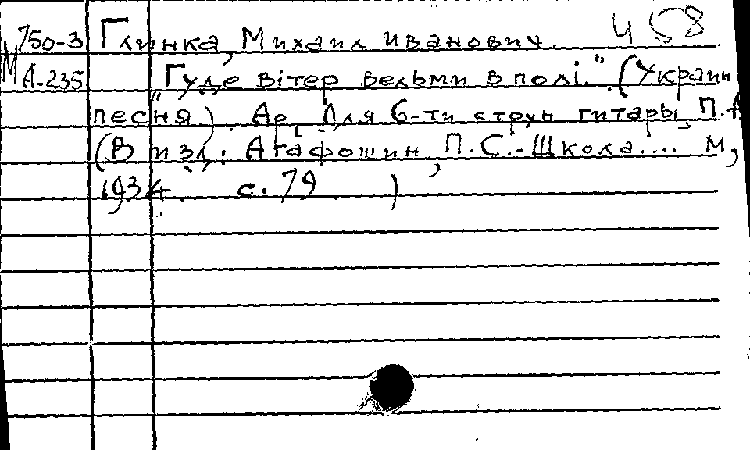 750-3 Глинка, Михаил Иванович. 458
М А-235 "Гуде вітер вельми в полі." (Украин.
песня). Ар. для 6-ти струн гитары П. А
(В изд.: Агафошин, П.С.-Школа.... М,
1934. с. 79 )